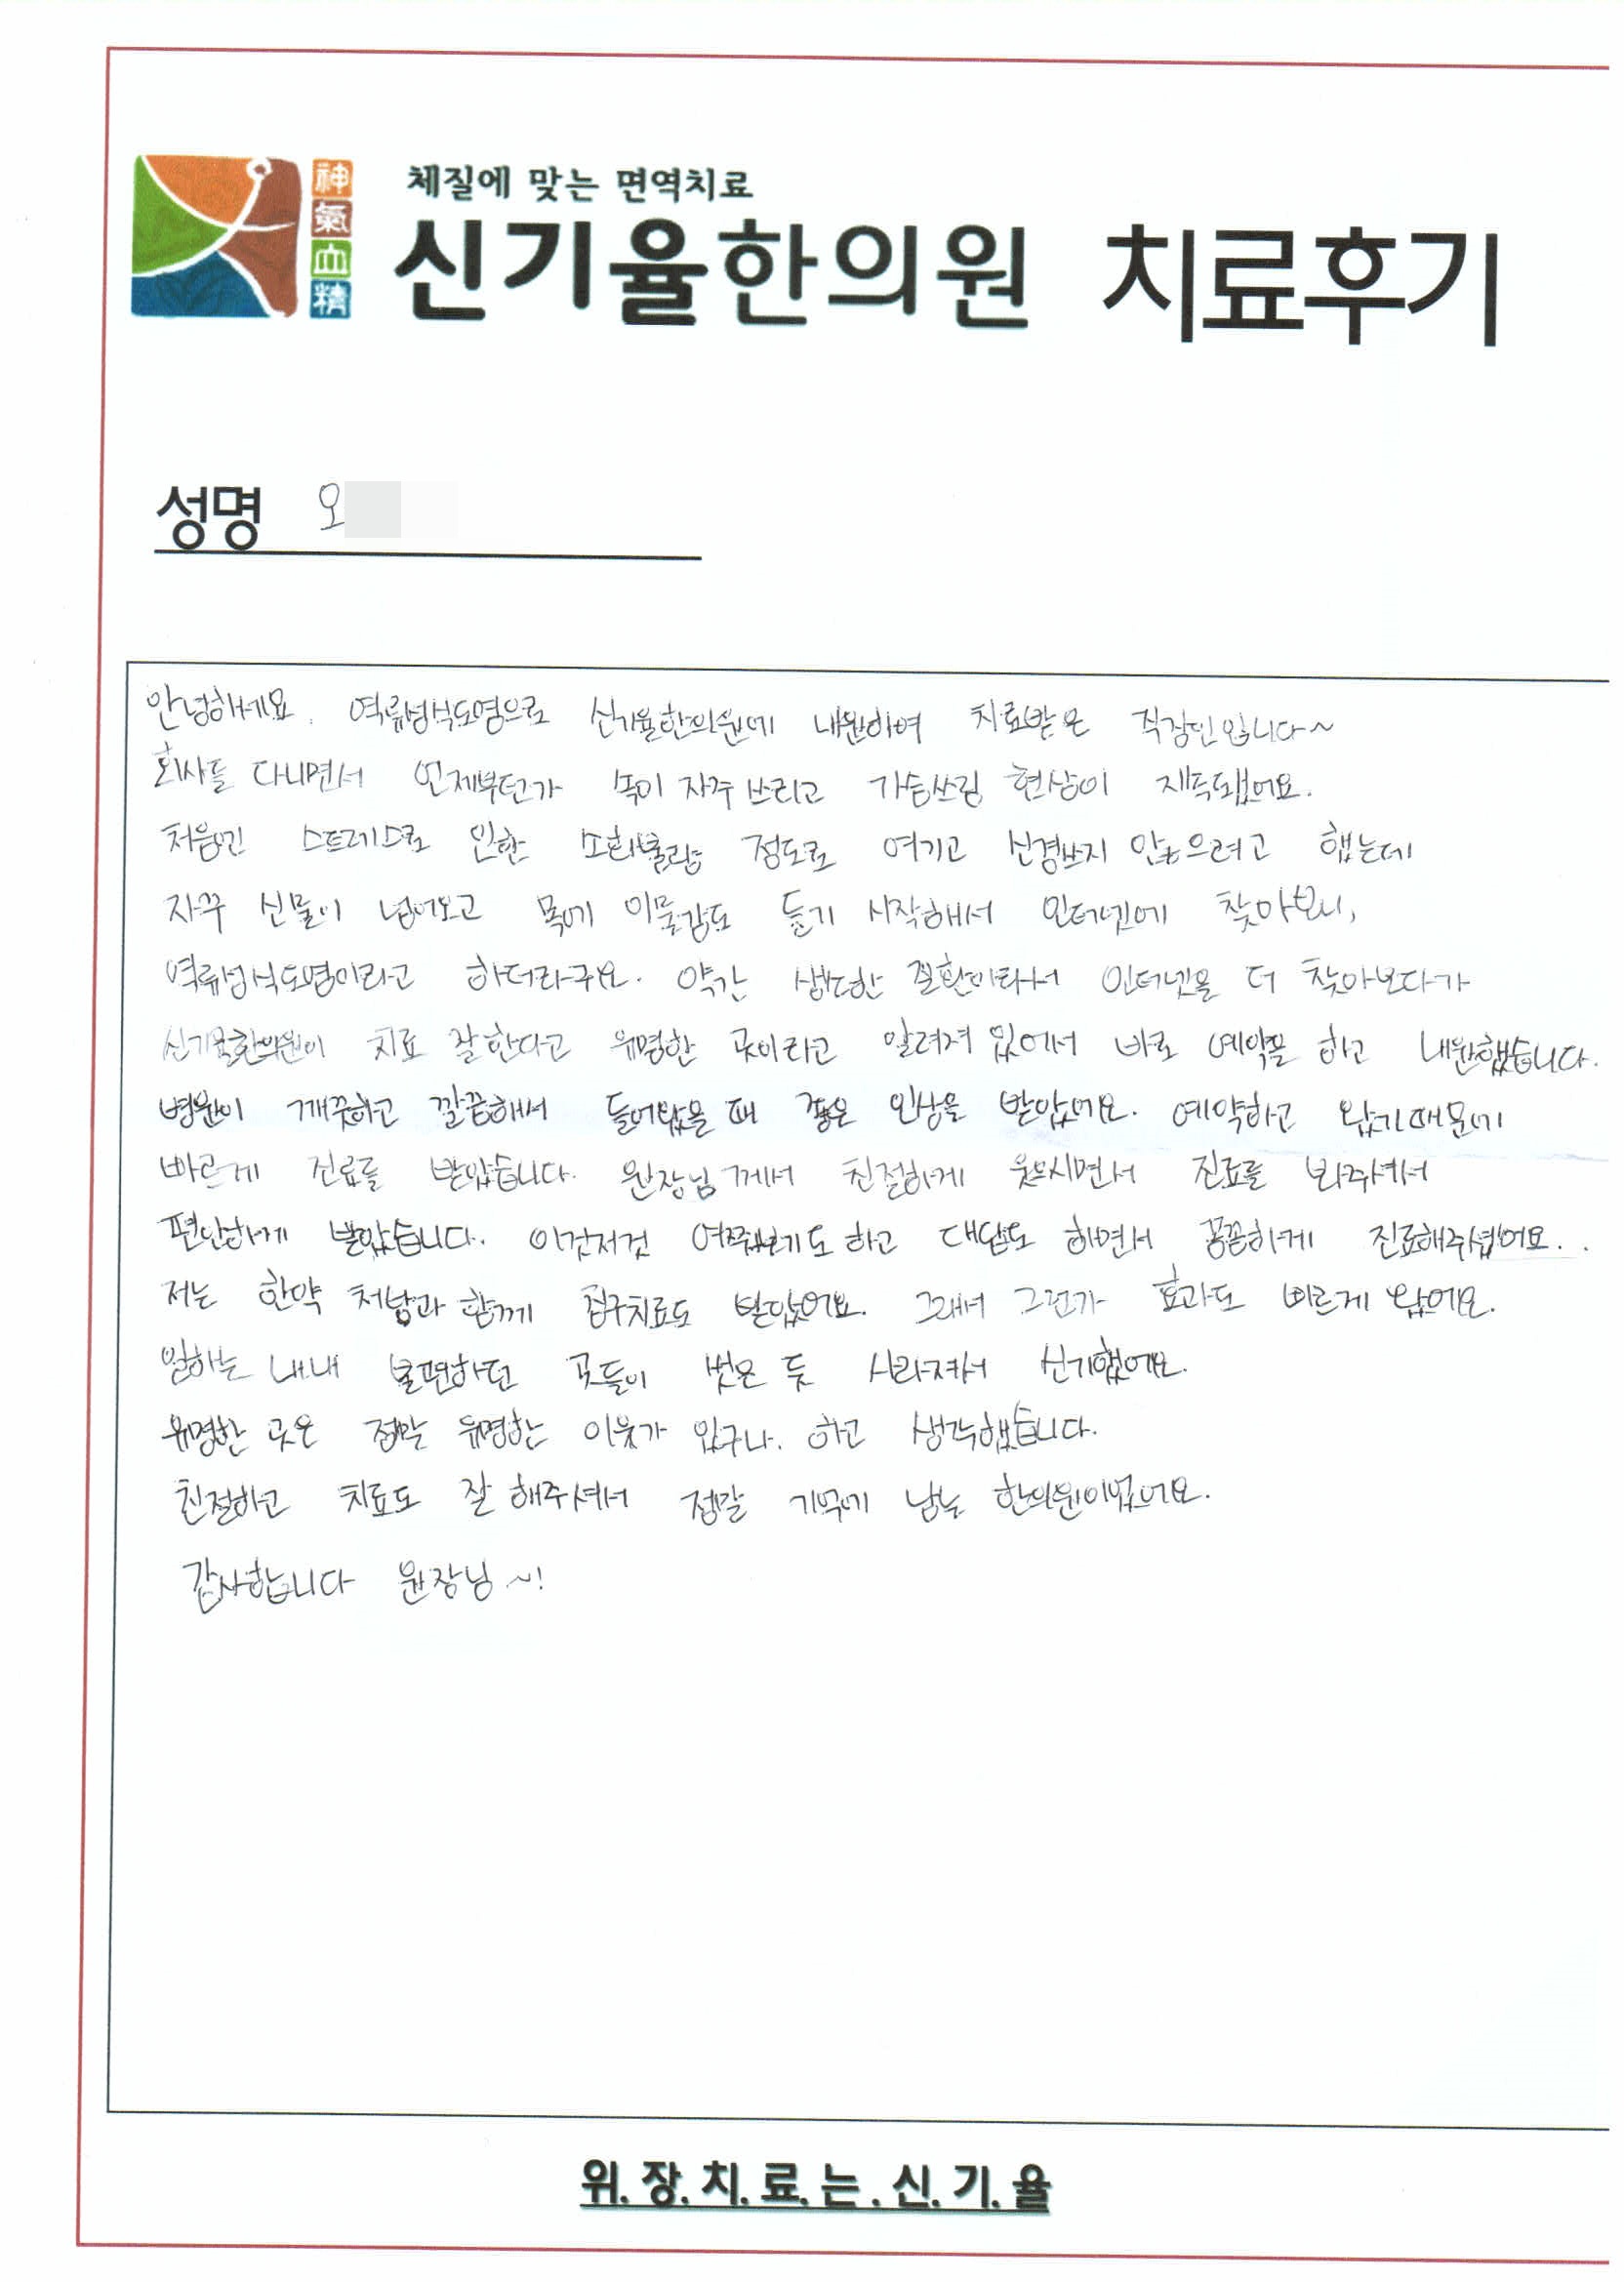 神
氣
血
精
체질에 맞는 면역치료
신기율한의원 치료후기
성명 오
안녕하세요. 역류성식도염으로 신기율한의원에 내원하여 치료받은 직장인입니다~
회사를 다니면서 언제부턴가 속이 자주 쓰리고 가슴쓰림 현상이 계속됐어요.
처음엔 스트레스로 인한 소화불량 정도로 여기고 신경쓰지 않으려고 했는데
자꾸 신물이 넘어오고 목에 이물감도 들기 시작해서 인터넷에 찾아보니,
역류성식도염이라고 하더라구요. 약간 생소한 질환이라서 인터넷을 더 찾아보다가
신기율한의원이 치료 잘한다고 유명한 곳이라고 알려져 있어서 바로 예약을 하고 내원했습니다.
병원이 깨끗하고 깔끔해서 들어왔을 때 좋은 인상을 받았어요. 예약하고 왔기때문에
빠르게 진료를 받았습니다. 원장님께서 친절하게 웃으시면서 진료를 봐주셔서
편안하게 받았습니다. 이것저것 여쭤보기도 하고 대답도 하면서 꼼꼼하게 진료해주셨어요..
저는 한약 처방과 함께 침구치료도 받았어요. 그래서 그런가 효과도 빠르게 왔어요.
일하는 내내 불편하던 곳들이 씻은 듯 사라져서 신기했어요.
유명한 곳은 정말 유명한 이유가 있구나. 하고 생각했습니다.
친절하고 치료도 잘 해주셔서 정말 기억에 남는 한의원이었어요.
감사합니다 원장님~!
위.장.치.료.는.신.기.율